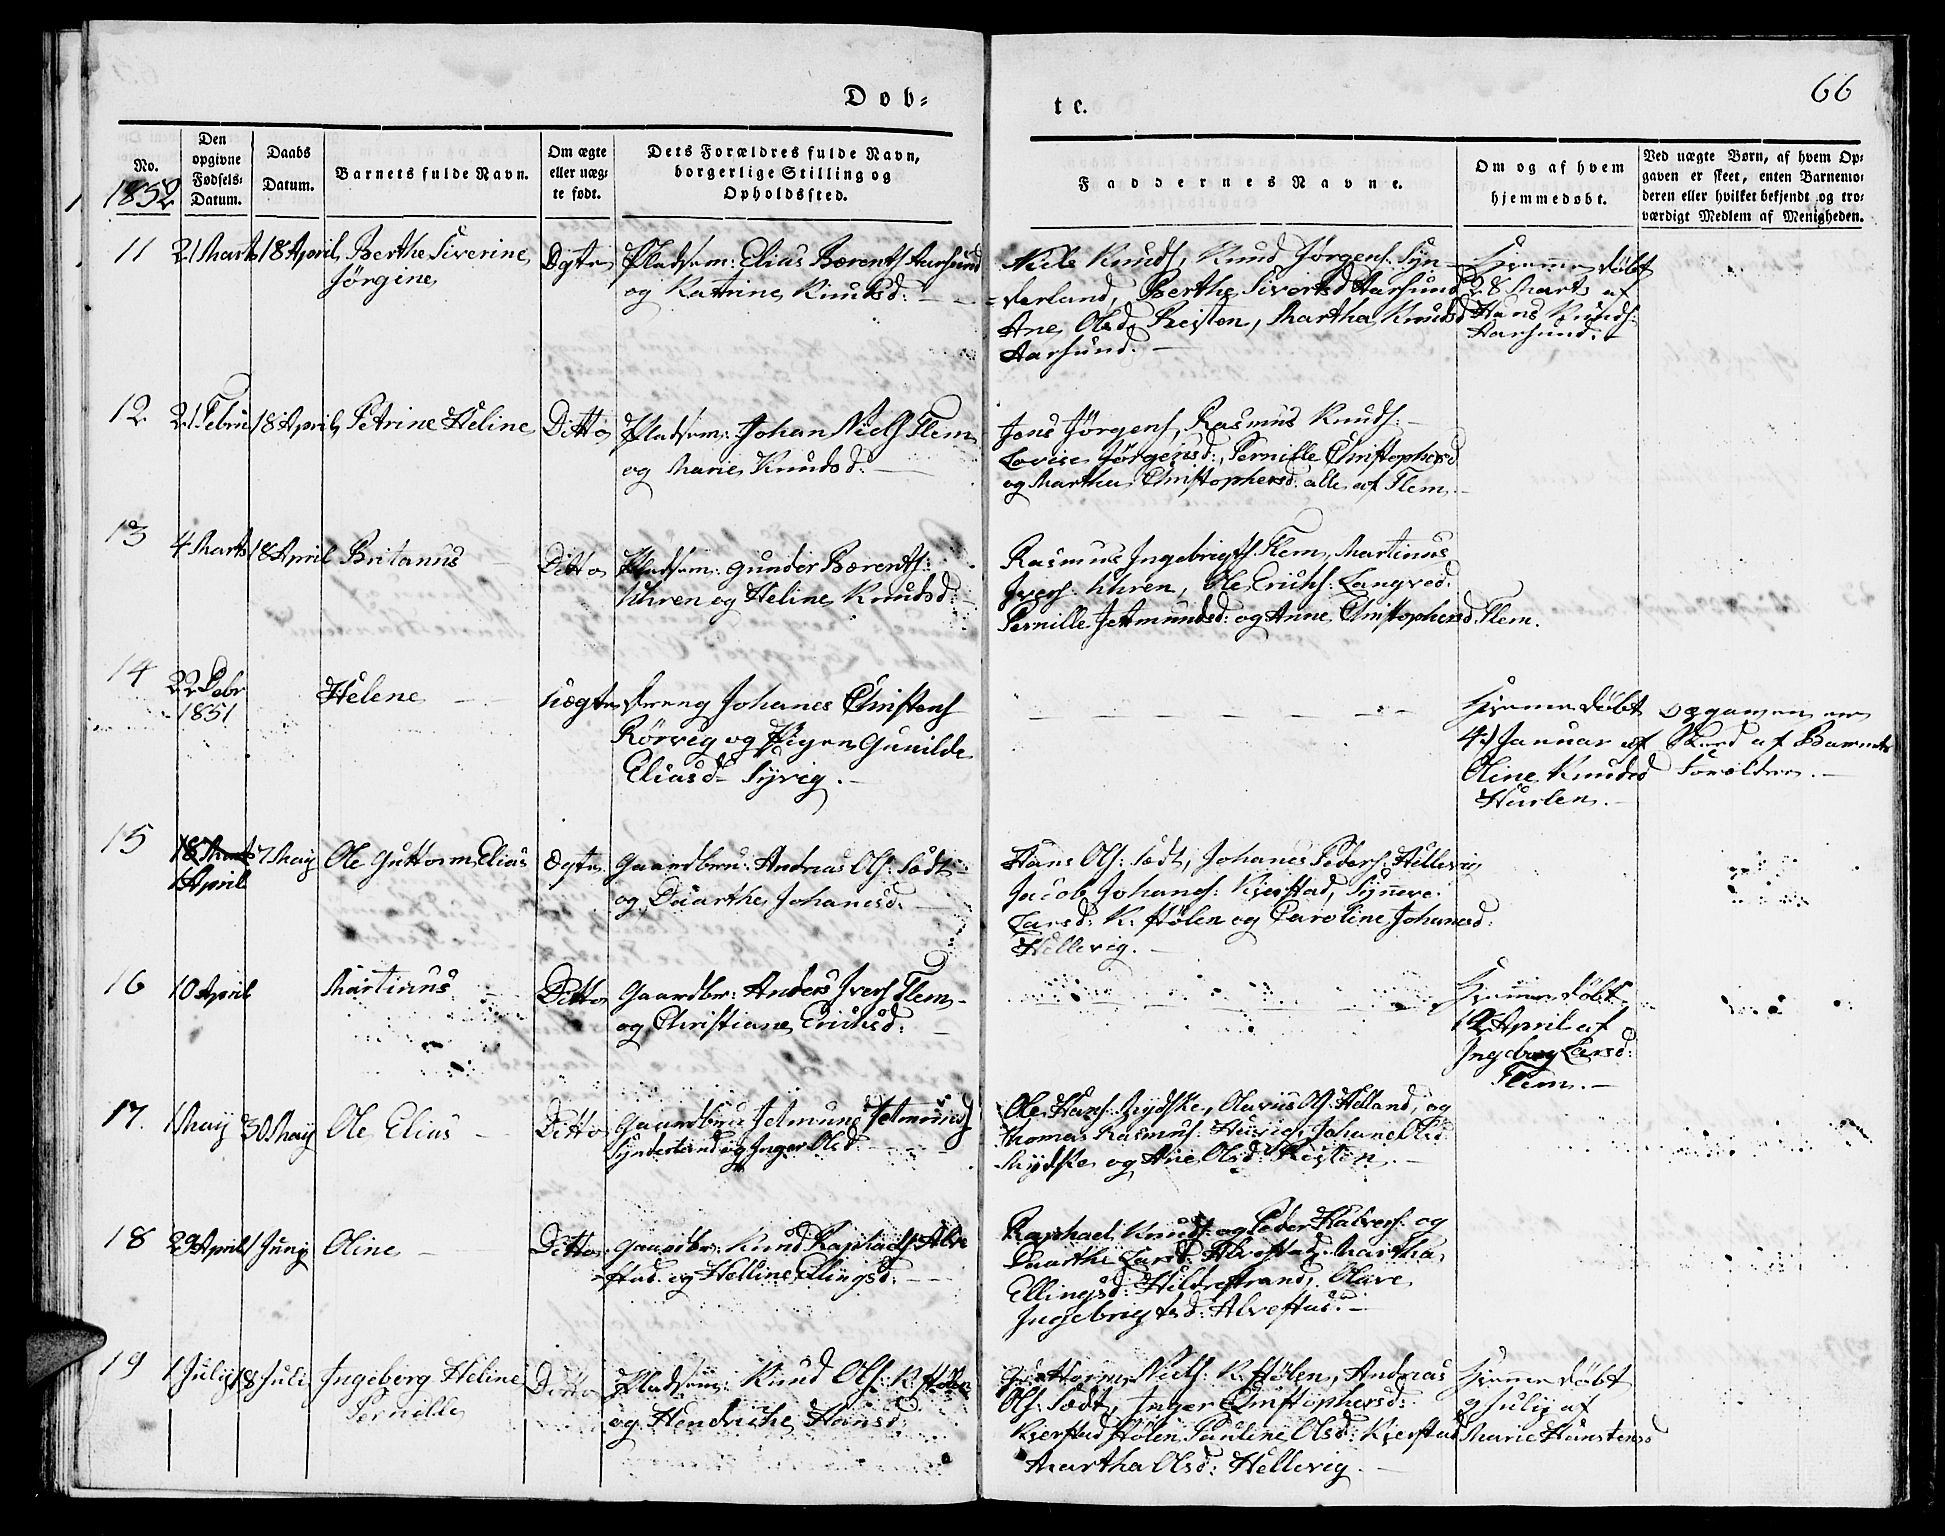 66
Døb-
te.
No.
Den
opgivne
Fødsels-
Datum.
Daabs
Datum.
Barnets fulde Navn.
Om ægte
eller uæg-
te født.
Dets Forældres fulde Navn,
borgerlige Stilling og
Opholdssted.
Faddernes Navne.
Om og af hvem
hjemmedøbt.
Ved uægte Børn, af hvem Op-
gaven er skeet, enten Barnemo-
deren eller hvilket bekjendt og tro-
værdigt Medlem af Menigheden.
1852
11 21 Marts 18 April Berthe Siverine
Jørgine
Ægte Pladsem: Elias Bærents Aarsund
og Katrine Knudsd:
Niels Knuds, Knud Jørgens: Syn-
derland, Berthe Sivertsd Aarsund
Ane Olsd Reisten, Martha Knudsd
Aarsund.
Hjemmedøbt
28 Marts af
Hans Knuds:
Aarsund.
12 21 Febru 18 April Petrine Heline Ditto Pladsem: Johan Niels Flem
og Marie Knudsd:
Jens Jørgens, Rasmus Knuds:
Lovise Jørgensd:, Pernille Christophersd
og Martha Christophersd: alle af Flem
13 4 Marts 18 April Britanus Ditto Pladsem: Gunder Bærents:
Uhren og Heline Knudsd
Rasmus Ingebrigts: Flem, Martinus
Ivers: Uhren, Ole Erichs: Langved.
Pernille Jetmundsd: og Anne Christophersd. Flem.
14 22 Debr
1851
Helene Uægte Dreng Johanes Christens
Rørvig og Pigen Gunilde
Eliasd Syvig.
Hjemmedøbt
4d Januar af
Oline Knudsd
Hurlen.
Opgaven er
Skeed af Barnets
Forældre.
15 18 Marts
1 April
7 May Ole Guttorm Elias Ægte Gaardbru: Andreas Ols: Sædt
og Daarthe Johansd.
Hans Ols: Sædt, Johanes Peders: Hellevig
Jacob Johans: Kjerstad, Synneve
Larsd: K. Hølen og Caroline Johansd:
Hellevig.
16 10 April Martinus Ditto Gaardbr: Anders Ivers Flem
og Christiane Erichsd:
Hjemmedøbt
12 April af
Ingeborg Larsd:
Flem.
17. 1 May 30 May Ole Elias Ditto Gaardbru Jetmund Jetmunds
Synderland og Inger Olsd
Ole Hans: Mydske, Olavus Ols: Helland, og
Thomas Rasmus: Johane Olsd
Mydske og Ane Olsd: Reisten
18 29 April 1 Juny Oline Ditto Gaardbr: Knud Raphaels Alve
stad og Helline Ellingsd:
Raphael Knuds og Peder Halvers: og
Daarthe Larsd Alvestad, Martha
Ellingsd: Hildrestrand, Olave
Ingebrigtsd: Alvestad.
19 1 July 18 Juli Ingeborg Heline
Pernille
Ditto Pladsem: Knud Ols: K. Hølen
og Hendriche Hansd:
Guttorm Niels: K. Hølen, Andreas
Ols: Sædt, Inger Christophersd:
Kjerstad Hølen, Pauline Olsd: Kjerstad
Martha Olsd: Hellevig
Hjemmedøbt
9 July af
Marie Hanstensd